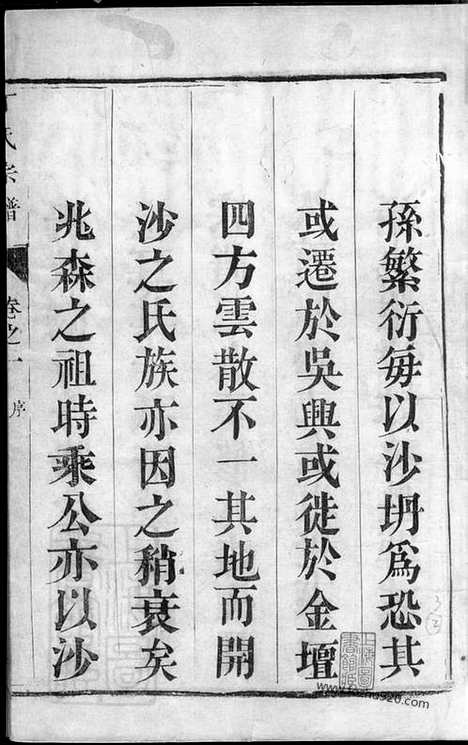 孫繁衍每以沙坍為恐其
或遷於吳興或徙於金壇
四方雲散不一其地而開
沙之氏族亦因之稍衰矣
兆森之祖時乘公亦以沙
氏宗譜
卷之一
序